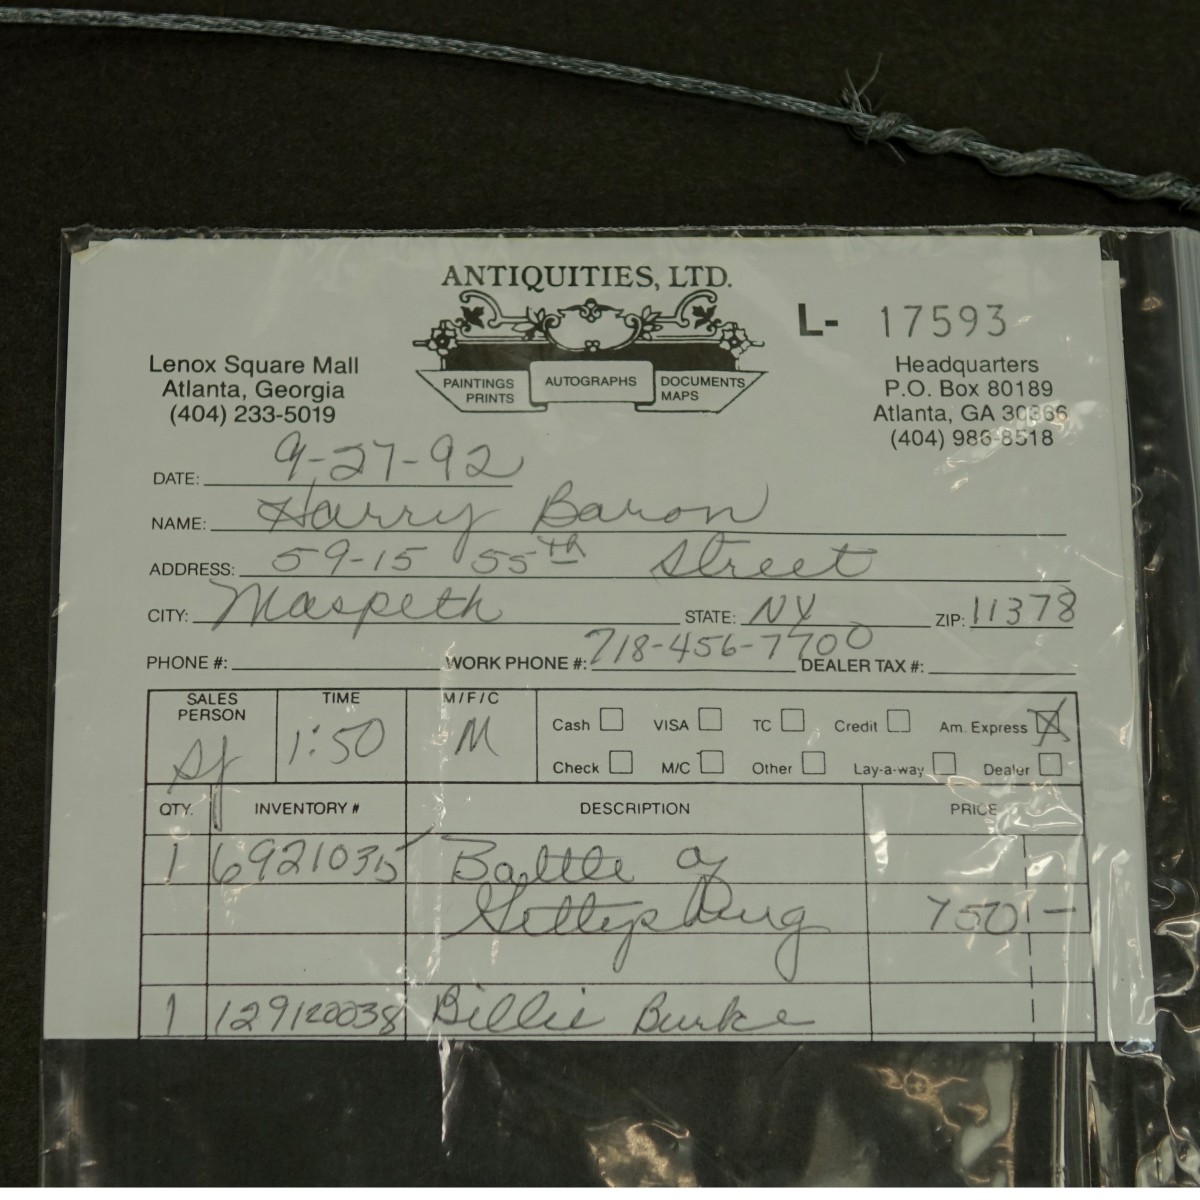 ANTIQUITIES, LTD.
L- 17593
Lenox Square Mall
Atlanta, Georgia
(404) 233-5019
PAINTINGS PRINTS
AUTOGRAPHS
DOCUMENTS MAPS
Headquarters
P.O. Box 80189
Atlanta, GA 30366
(404) 986-8518
DATE: 9-27-92
NAME: Harry Baron
ADDRESS: 59-15 55th Street
CITY: Maspeth STATE: NY ZIP: 11378
PHONE #: WORK PHONE #: 718-456-7700 DEALER TAX #:
SALES PERSON TIME M/F/C
1:50 M
Cash VISA TC Credit Am. Express
Check M/C Other Lay-a-way Dealer
QTY. INVENTORY # DESCRIPTION PRICE
1 6921035 Battle of
Gettysburg 750 -
1 129120038 Billie Burke